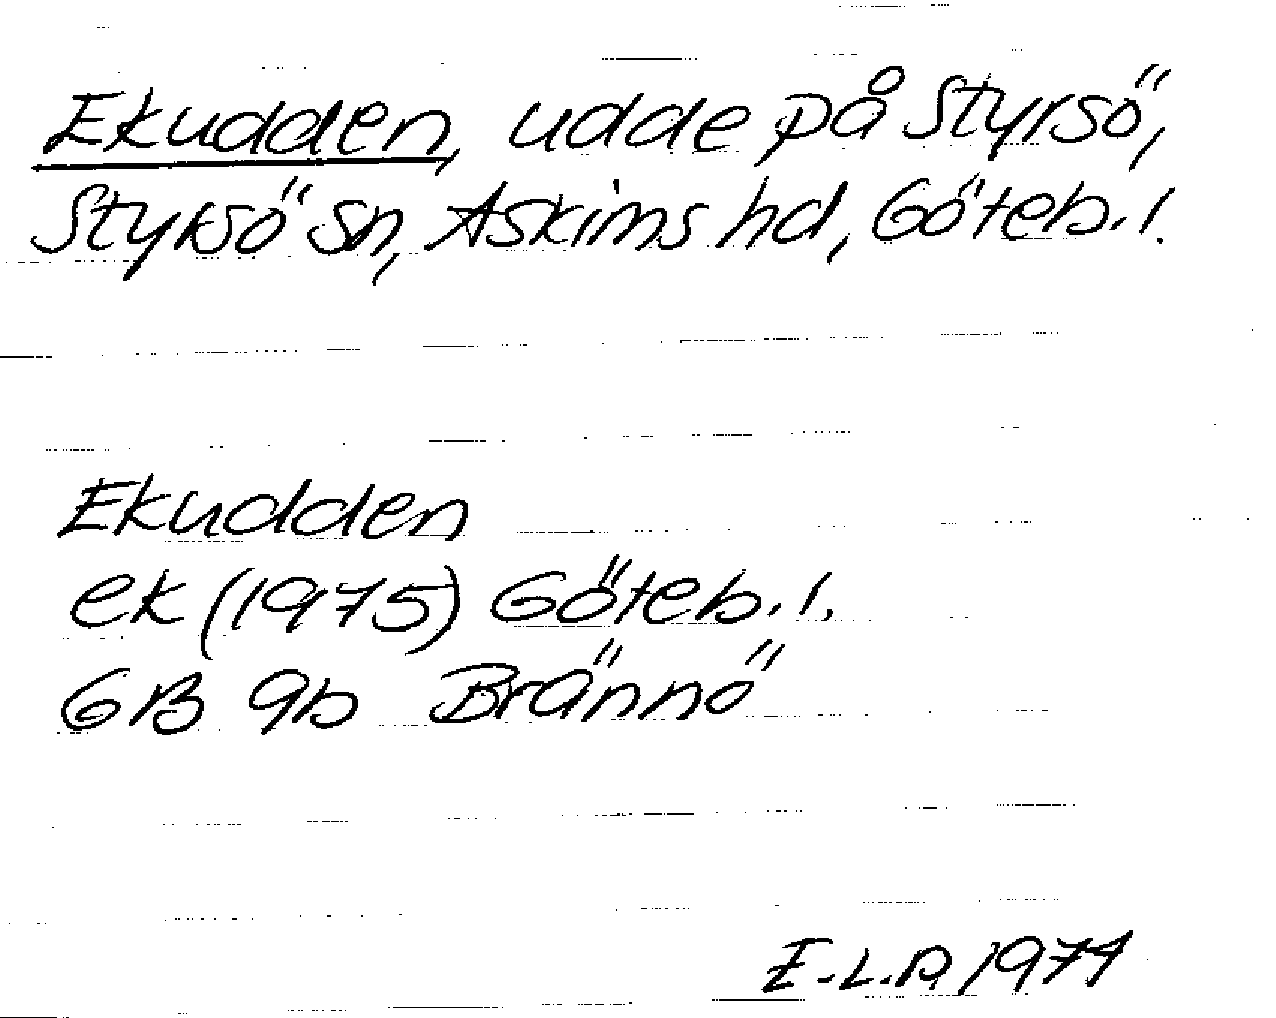 Ekudden, udde på Styrsö,
Styrsö sn, Askims hd, Göteb. l.
Ekudden
ek (1975) Göteb. l.
GB 9b Brännö
E.L.P. 1974